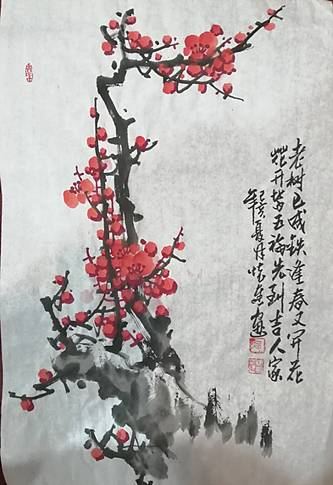 老树已成铁逢春又开花
花开五福先到吉人家
夏月